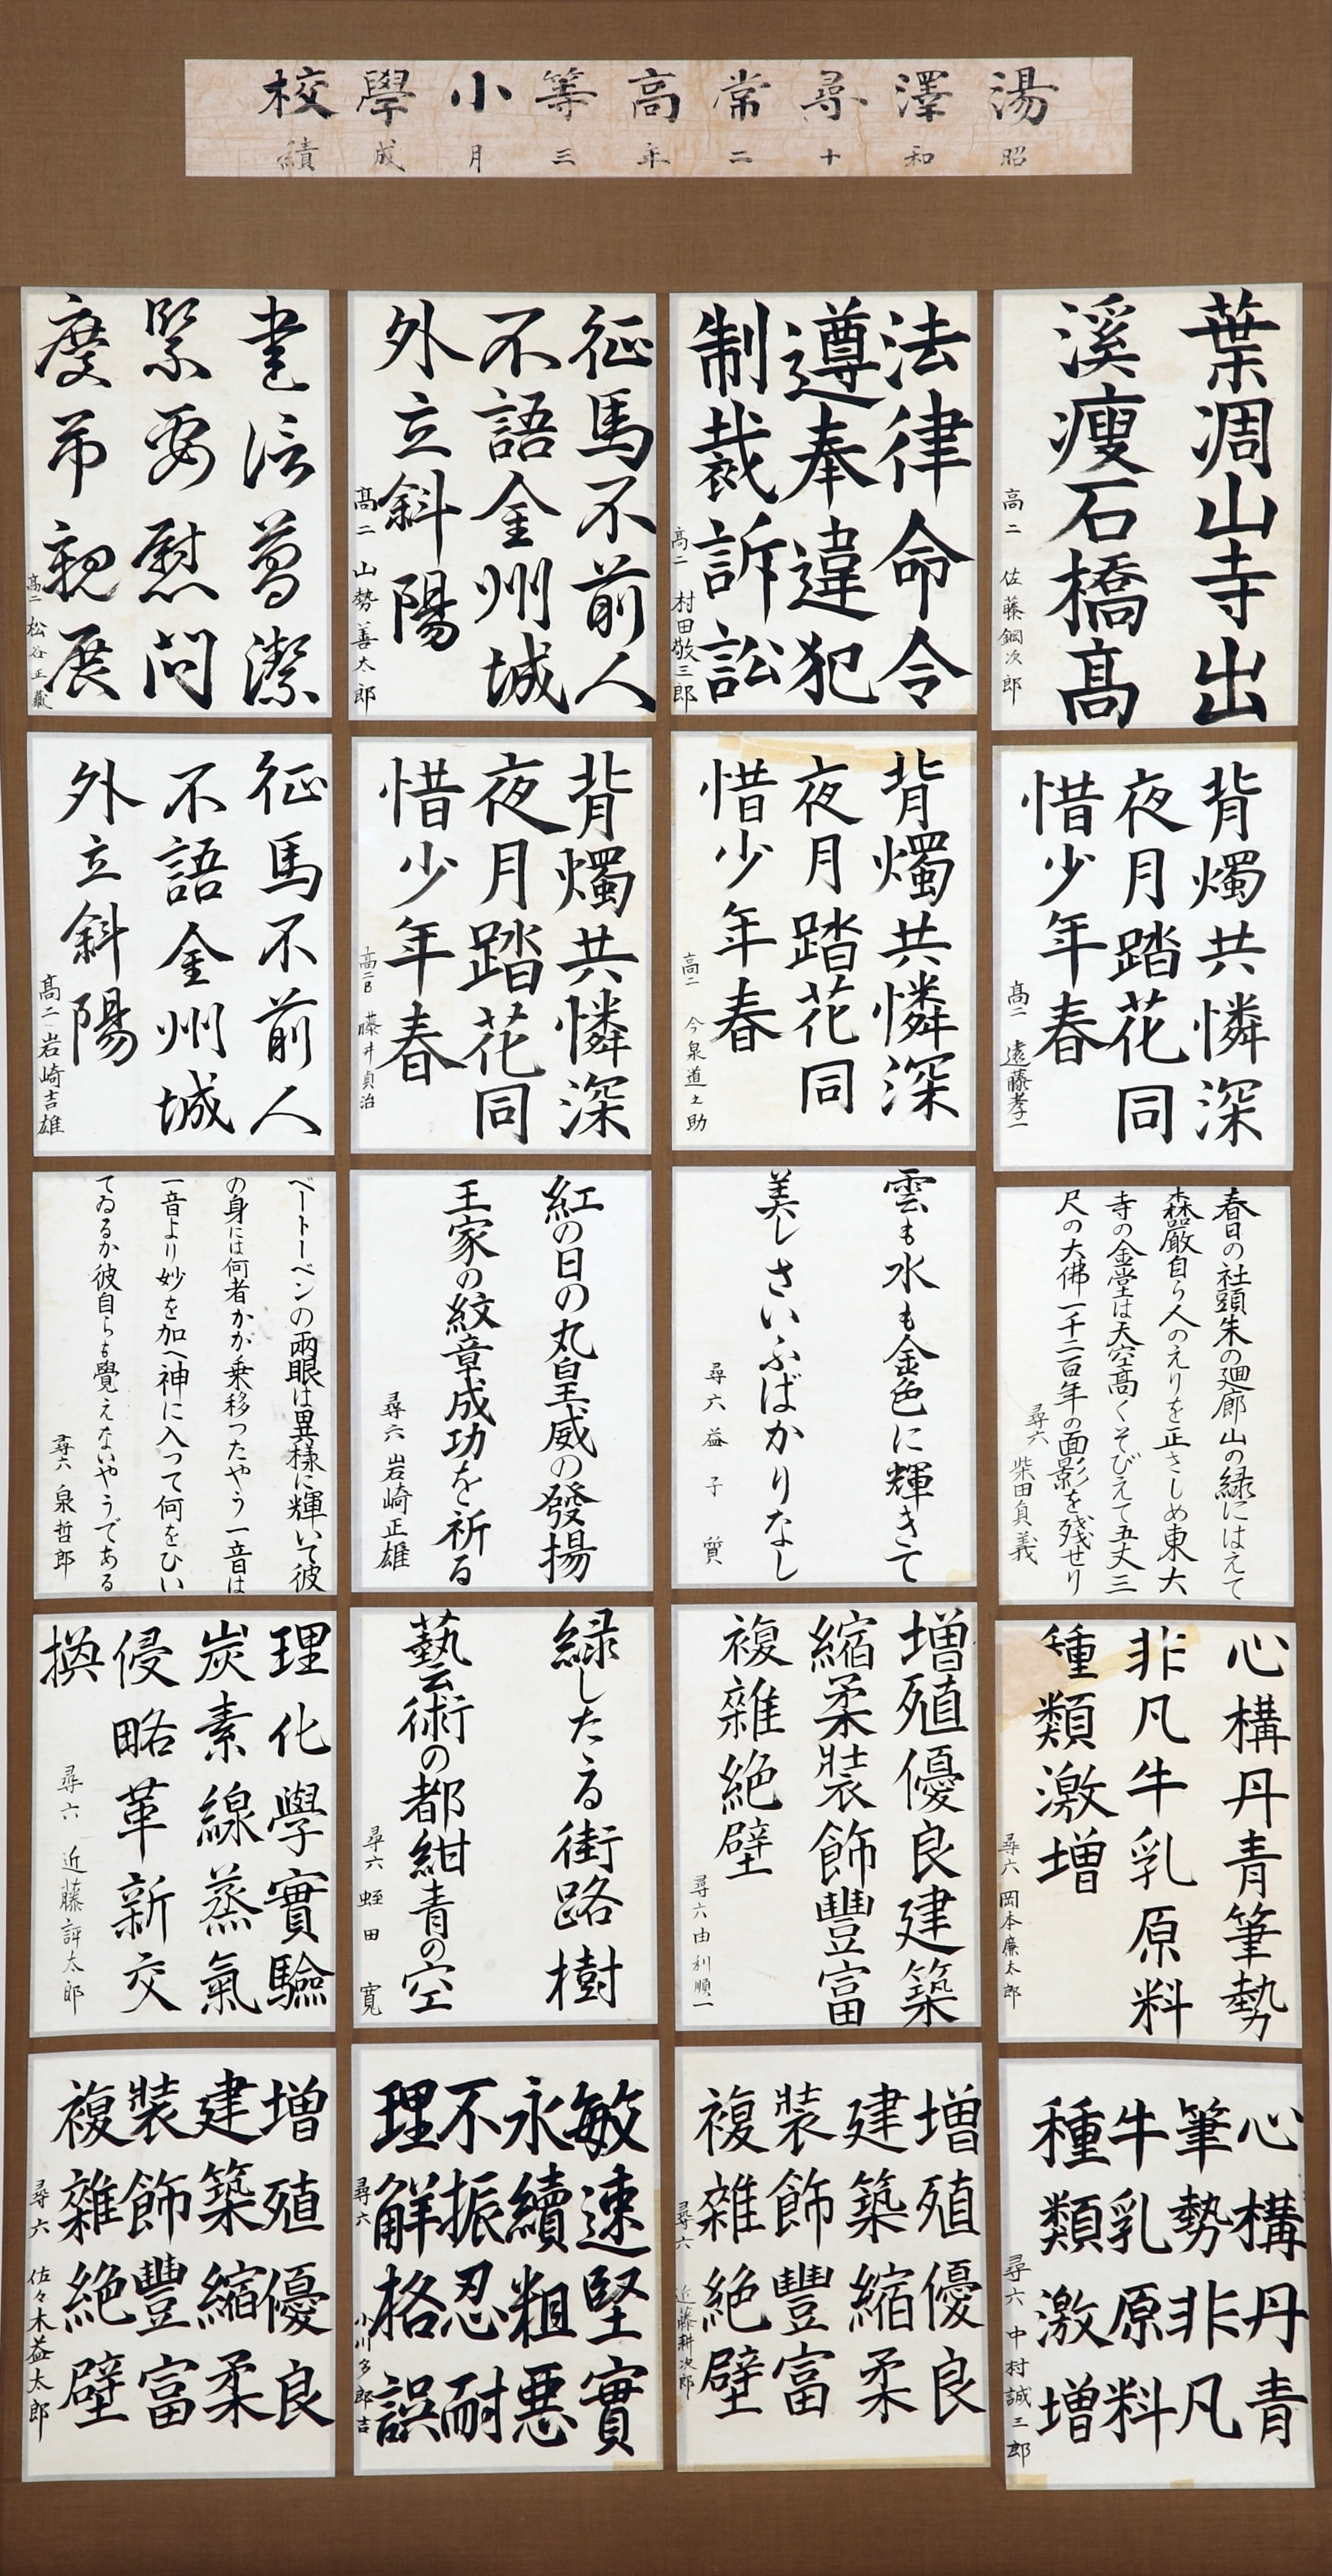 湯澤尋常高等小學校
昭和十二年三月成績
葉凋山寺出
溪瘦石橋高
高二 佐藤鋼次郎
法律命令
遵奉違犯
制裁訴訟
高二 村田敬三郎
征馬不前人
不語金州城
外立斜陽
高二 山勢善太郎
書信簡潔
緊要慰問
慶弔親展
高二 松谷正藏
背燭共憐深
夜月踏花同
惜少年春
高二 遠藤孝一
背燭共憐深
夜月踏花同
惜少年春
高二 今泉道之助
背燭共憐深
夜月踏花同
惜少年春
高二B 藤井貞治
征馬不前人
不語金州城
外立斜陽
高二 岩崎吉雄
春日の社頭朱の廻廊山の緑にはえて
森嚴自ら人のえりを正さしめ東大
寺の金堂は天空高くそびえて五丈三
尺の大佛一千二百年の面影を残せり
尋六 柴田貞義
雲も水も金色に輝きて
美しさいふばかりなし
尋六 益子質
紅の日の丸皇威の發揚
王家の紋章成功を祈る
尋六 岩崎正雄
ベートーベンの両眼は異様に輝いて彼
の身には何者かが乗移つたやう一音は
一音より妙を加へ神に入って何をひい
てゐるか彼自らも覺えないやうである
尋六 泉哲郎
心構丹青筆勢
非凡牛乳原料
種類激増
尋六 岡本廉太郎
増殖優良建築
縮柔裝飾豐富
複雜絶壁
尋六 由利順一
緑したゝる街路樹
藝術の都紺青の空
尋六 蛭田寛
理化學實驗
炭素線蒸氣
侵略革新交
換
尋六 近藤評太郎
心構丹青
筆勢非凡
牛乳原料
種類激増
尋六 中村誠三郎
増殖優良
建築縮柔
装飾豐富
複雜絶壁
尋六 近藤耕次郎
敏速堅實
永續粗悪
不振忍耐
理解格誤
尋六 小川多郎吉
増殖優良
建築縮柔
装飾豐富
複雜絶壁
尋六 佐々木益太郎